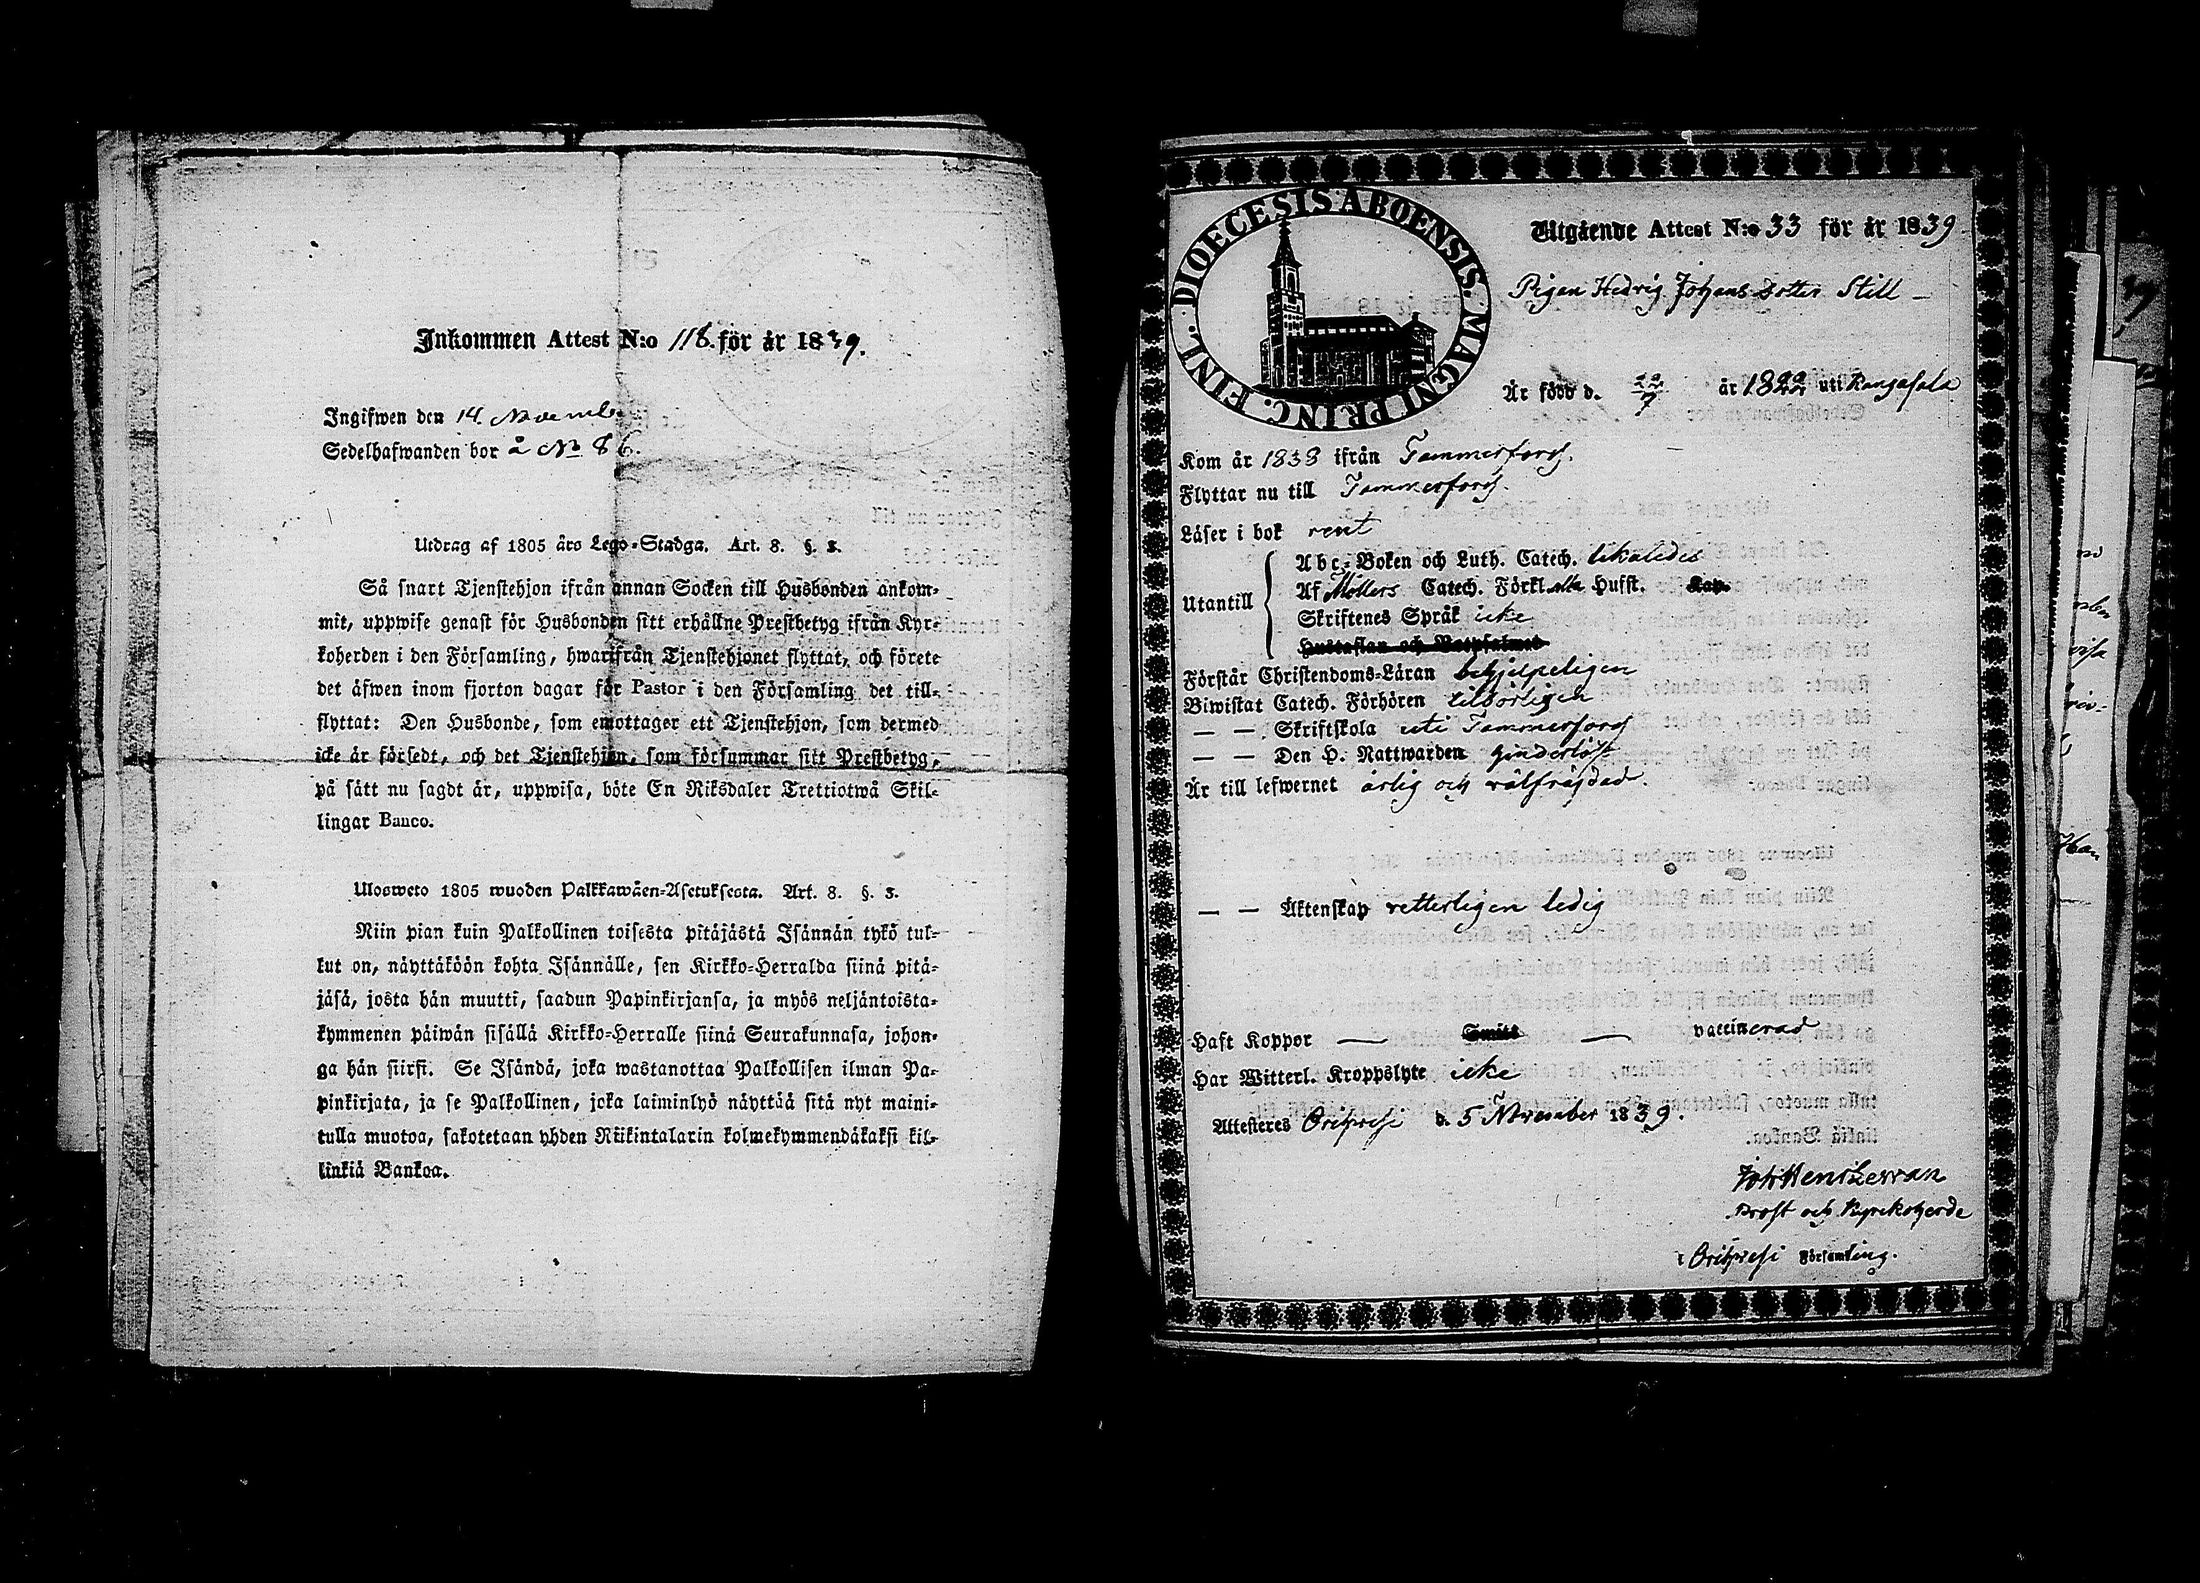 Inkommen Attest N:o 118. för år 1839.
Ingifwen den 14. November
Sedelhafwanden bor å No 86.
Utdrag af 1805 års Lego-Stadga. Art. 8. §. 3.
Så snart Tjenstehjon ifrån annan Socken till Husbonden ankom-
mit, uppwise genast för Husbonden sitt erhållne Prestbetyg ifrån Kyr-
koherden i den Församling, hwarifrån Tjenstehjonet flyttat, och förete
det äfwen inom fjorton dagar för Pastor i den Församling det till-
flyttat: Den Husbonde, som emottager ett Tjenstehjon, som dermed
icke är försedt, och det Tjenstehjon, som försummar sitt Prestbetyg,
på sätt nu sagdt är, uppwisa, böte En Riksdaler Trettiotwå Skil-
lingar Banco.
Ulosweto 1805 wuoden Palkkawäen-Asetuksesta. Art. 8. §. 3.
Niin pian kuin Palkollinen toisesta pitäjästä Isännän tykö tul-
kut on, näyttäköön kohta Isännälle, sen Kirkko-Herralda siinä pitä-
jäsä, josta hän muutti, saadun Papinkirjansa, ja myös neljäntoista-
kymmenen päiwän sisällä Kirkko-Herralle siinä Seurakunnasa, johon-
ga hän siirsi. Se Isändä, joka wastanottaa Palkollisen ilman Pa-
pinkirjata, ja se Palkollinen, joka laiminlyö näyttää sitä nyt maini-
tulla muotoa, sakotetaan yhden Riikintalarin kolmekymmendäkaksi kil-
linkiä Bankoa.
DIOECESIS ABOENSIS. MAGNI PRINC. FINL.
Utgående Attest N:o 33 för år 1839.
Pigan Hedvig Johans dotter Still –
Är född d. 22/7 år 1822 uti Kangasala
Kom år 1838 ifrån Tammerfors.
Flyttar nu till Tammerfors.
Läser i bok rent
Utantill
Abc-Boken och Luth. Catech. likaledes
Af Möllers Catech. Förkl. alla Hufst. Kap.
Skriftenes Språk icke
Hustaflan och Botpsalmes
Förstår Christendoms-Läran behjelpeligen
Biwistat Catech. Förhören tilbörligen
— — Skriftskola uti Tammerfors
— — Den H. Nattwarden
Är till lefwernet ärlig och välfräjdad.
— — Äktenskap ledig
Haft Koppor — Smitt — vaccinerad
Har Witterl. Kroppslyte icke
Attesteres Orihvesi d. 5 November 1839.
Prost och Kyrkoherde
i Orihvesi Församling.